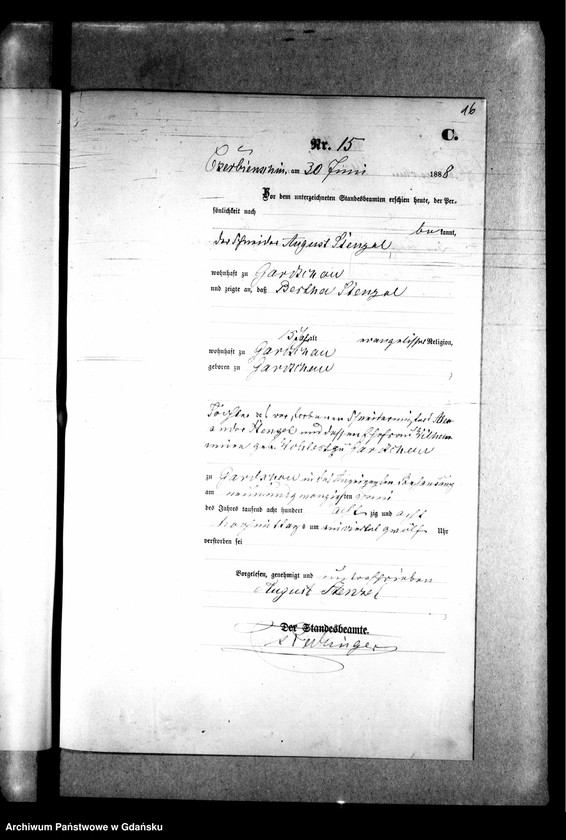 16
C.
Nr. 15
am 30 Juni 1888
Vor dem unterzeichneten Standesbeamten erschien heute, der Per-
sönlichkeit nach
bekannt,
der Schneider August Stenzel
wohnhaft zu Gardschau
und zeigte an, daß Bertha Stenzel
15 Jahr alt evangelischer Religion,
wohnhaft zu Gardschau
geboren zu Gardschau
Tochter des verstorbenen Schneidermeisters Alex-
ander Stenzel und dessen Ehefrau Wilhel-
mine geb. zu Gardschau
zu Gardschau in des Anzeigenden Behausung
am neunundzwanzigsten Juni
des Jahres tausend acht hundert achtzig und acht
Vormittags um ein viertel zwölf Uhr
verstorben sei
Vorgelesen, genehmigt und unterschrieben
August Stenzel
Der Standesbeamte.
Archiwum Państwowe w Gdańsku